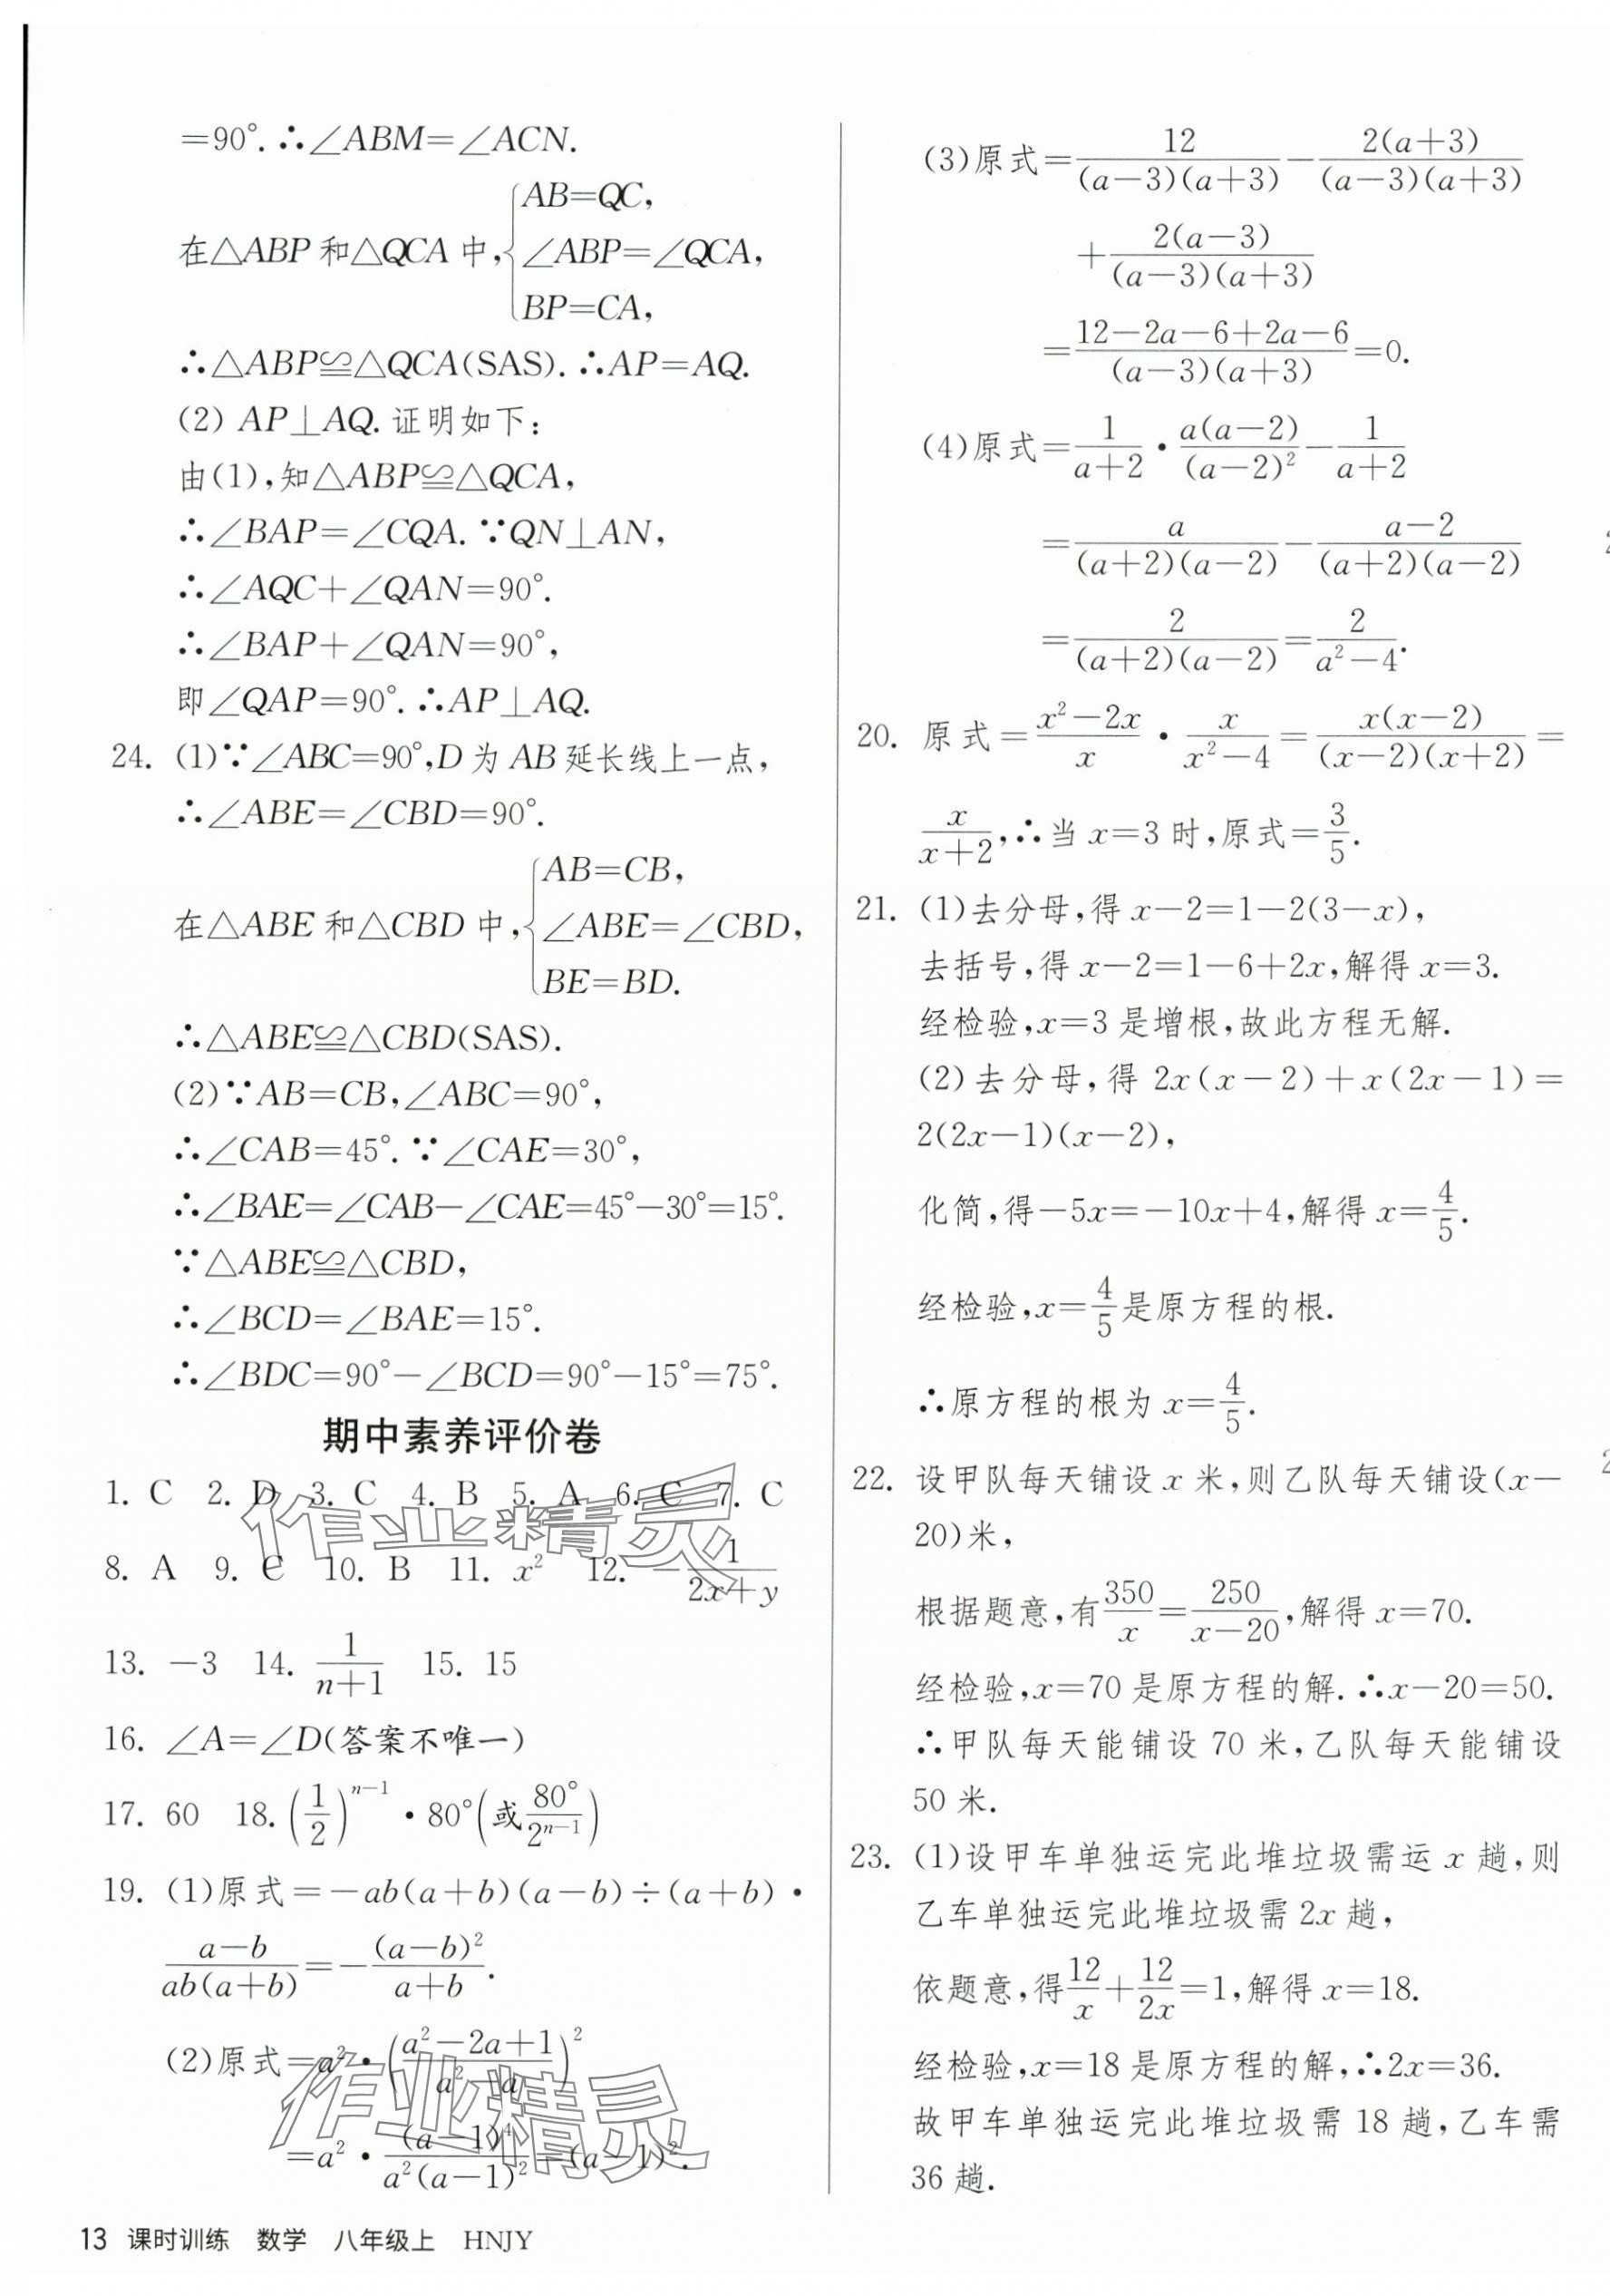 =90°. ∴∠ABM=∠ACN.
在△ABP 和△QCA 中, {AB=QC,
∠ABP=∠QCA,
BP=CA,
∴△ABP≌△QCA(SAS). ∴AP=AQ.
(2) AP⊥AQ. 证明如下:
由(1),知△ABP≌△QCA,
∴∠BAP=∠CQA. ∵QN⊥AN,
∴∠AQC+∠QAN=90°.
∴∠BAP+∠QAN=90°,
即∠QAP=90°. ∴AP⊥AQ.
24. (1)∵∠ABC=90°,D 为 AB 延长线上一点,
∴∠ABE=∠CBD=90°.
在△ABE 和△CBD 中, {AB=CB,
∠ABE=∠CBD,
BE=BD.
∴△ABE≌△CBD(SAS).
(2)∵AB=CB,∠ABC=90°,
∴∠CAB=45°. ∵∠CAE=30°,
∴∠BAE=∠CAB−∠CAE=45°−30°=15°.
∵△ABE≌△CBD,
∴∠BCD=∠BAE=15°.
∴∠BDC=90°−∠BCD=90°−15°=75°.
期中素养评价卷
1. C 2. D 3. C 4. B 5. A 6. C 7. C
8. A 9. C 10. B 11. x² 12. −1/(2x+y)
13. −3 14. 1/(n+1) 15. 15
16. ∠A=∠D(答案不唯一)
17. 60 18. (1/2)^(n−1)・80°(或80°/2^(n−1))
19. (1)原式=−ab(a+b)(a−b)÷(a+b)・
(a−b)/(ab(a+b))=−(a−b)²/(a+b).
(2)原式=a²・((a²−2a+1)/(a²−a))²
=a²・(a−1)⁴/(a²(a−1)²)=(a−1)².
13 课时训练 数学 八年级上 HNJY
(3)原式=12/((a−3)(a+3))−2(a+3)/((a−3)(a+3))
+2(a−3)/((a−3)(a+3))
=(12−2a−6+2a−6)/((a−3)(a+3))=0.
(4)原式=1/(a+2)・a(a−2)/(a−2)²−1/(a+2)
=a/((a+2)(a−2))−(a−2)/((a+2)(a−2))
=2/((a+2)(a−2))=2/(a²−4).
20. 原式=(x²−2x)/x・x/(x²−4)=x(x−2)/((x−2)(x+2))=
x/(x+2),∴当 x=3 时,原式=3/5.
21. (1)去分母,得 x−2=1−2(3−x),
去括号,得 x−2=1−6+2x,解得 x=3.
经检验,x=3 是增根,故此方程无解.
(2)去分母,得 2x(x−2)+x(2x−1)=
2(2x−1)(x−2),
化简,得−5x=−10x+4,解得 x=4/5.
经检验,x=4/5是原方程的根.
∴原方程的根为 x=4/5.
22. 设甲队每天铺设 x 米,则乙队每天铺设(x−
20)米,
根据题意,有350/x=250/(x−20),解得 x=70.
经检验,x=70 是原方程的解. ∴x−20=50.
∴甲队每天能铺设 70 米,乙队每天能铺设
50 米.
23. (1)设甲车单独运完此堆垃圾需运 x 趟,则
乙车单独运完此堆垃圾需 2x 趟,
依题意,得12/x+12/2x=1,解得 x=18.
经检验,x=18 是原方程的解,∴2x=36.
故甲车单独运完此堆垃圾需 18 趟,乙车需
36 趟.
作业精灵
作业精灵